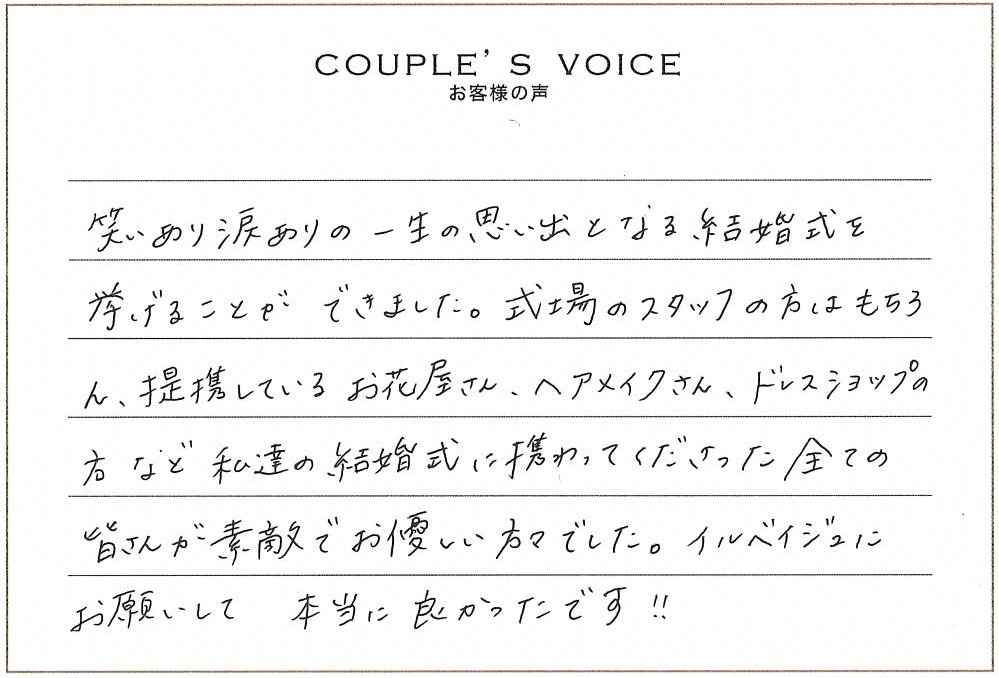 COUPLE'S VOICE
お客様の声
笑いあり涙ありの一生の思い出となる結婚式を
挙げることが できました。式場のスタッフの方はもちろ
ん、提携している お花屋さん、ヘアメイクさん、ドレスショップの
方 など 私達の結婚式に携わってくださった全ての
皆さんが素敵でお優しい方々でした。イルベイジュに
お願いして 本当に良かったです!!